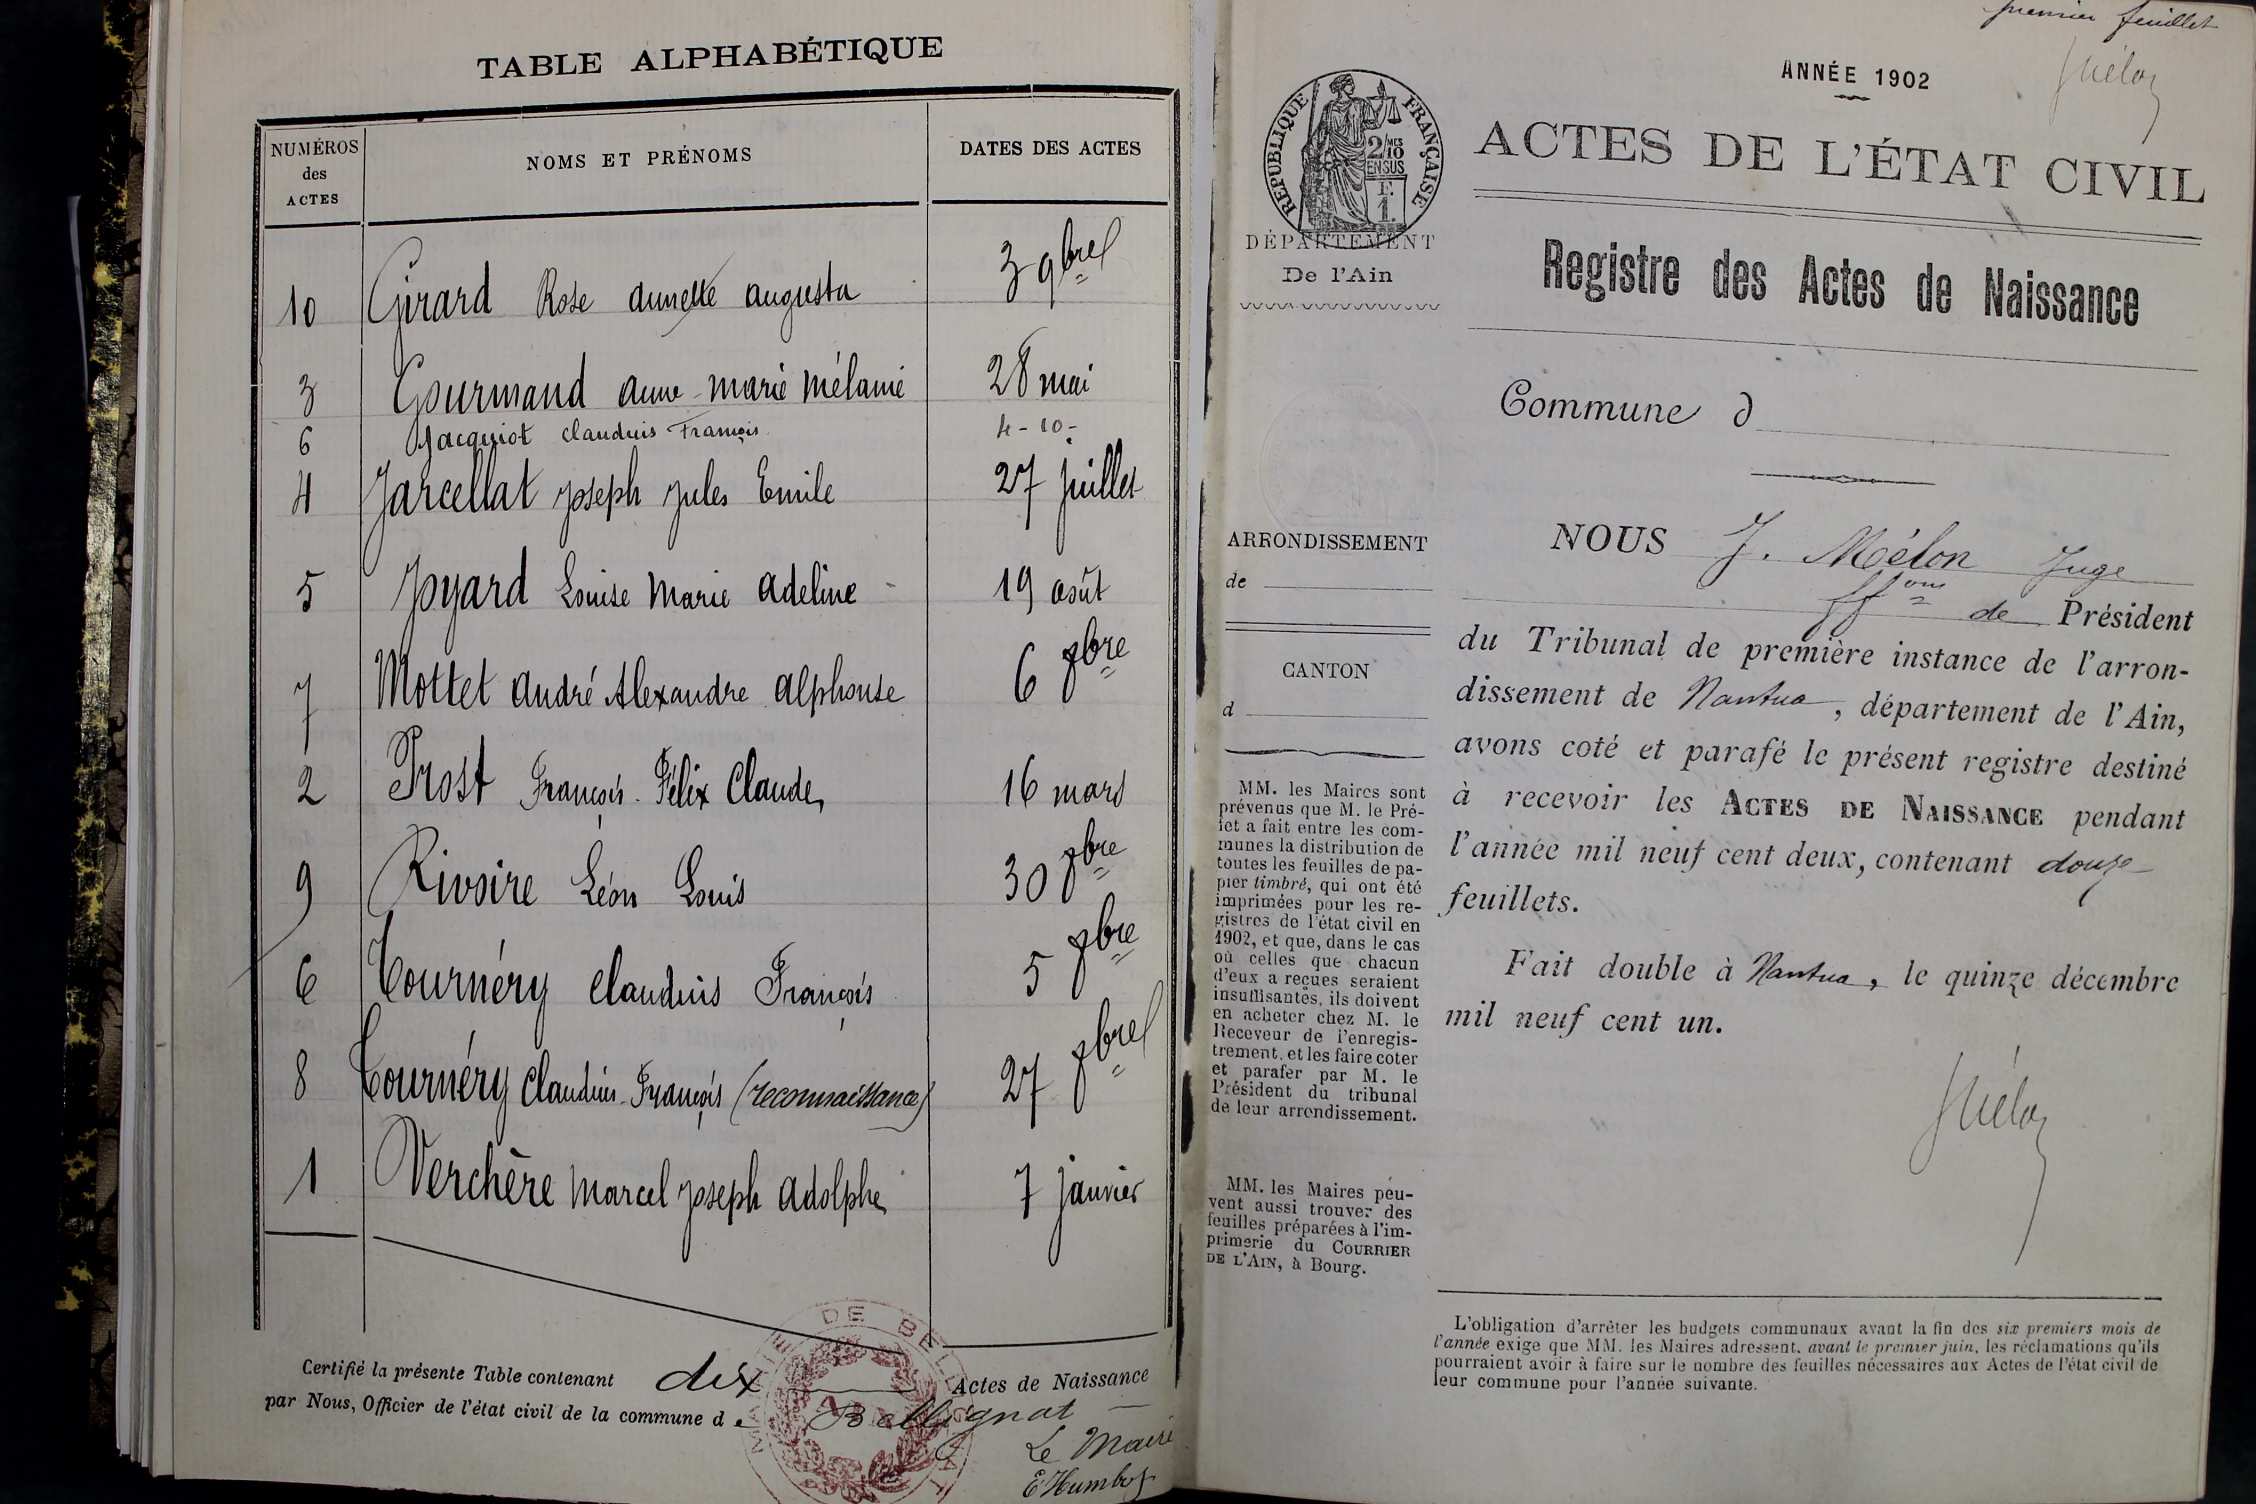 TABLE ALPHABÉTIQUE
NUMÉROS des ACTES
NOMS ET PRÉNOMS
DATES DES ACTES
10 Girard Rose Annette Augusta 3 9bre
3 Gourmand Anne-Marie Mélanie 28 mai
6 Jacquiot Claudius François 4-10-
4 Jarcellat Joseph Jules Emile 27 juillet
5 Joyard Louise Marie Adeline 19 août
7 Mottet André Alexandre Alphonse 6 8bre
2 Prost François-Félix Claude 16 mars
9 Rivoire Léon Louis 30 8bre
6 Tournéry Claudius François 5 8bre
8 Tournéry Claudius-François (reconnaissance) 27 8bre
1 Verchère Marcel Joseph Adolphe 7 janvier
Certifié la présente Table contenant dix Actes de Naissance
par Nous, Officier de l'état civil de la commune de Bellignat
Le Maire
E Humbert
MAIRIE DE BELLIGNAT
AIN
premier feuillet
ANNÉE 1902
RÉPUBLIQUE FRANÇAISE
2/10 MES
EN SUS
F.
1.
DÉPARTEMENT
De l'Ain
ACTES DE L'ÉTAT CIVIL
Registre des Actes de Naissance
Commune d
ARRONDISSEMENT
de
CANTON
d
MM. les Maires sont
prévenus que M. le Pré-
fet a fait entre les com-
munes la distribution de
toutes les feuilles de pa-
pier timbré, qui ont été
imprimées pour les re-
gistres de l'état civil en
1902, et que, dans le cas
où celles que chacun
d'eux a reçues seraient
insuffisantes, ils doivent
en acheter chez M. le
Receveur de l'enregis-
trement, et les faire coter
et parafer par M. le
Président du tribunal
de leur arrondissement.
MM. les Maires peu-
vent aussi trouver des
feuilles préparées à l'im-
primerie du COURRIER
DE L'AIN, à Bourg.
NOUS J. Mélon Juge
ff ons de Président
du Tribunal de première instance de l'arron-
dissement de Nantua, département de l'Ain,
avons coté et parafé le présent registre destiné
à recevoir les ACTES DE NAISSANCE pendant
l'année mil neuf cent deux, contenant douze
feuillets.
Fait double à Nantua, le quinze décembre
mil neuf cent un.
JMélon
L'obligation d'arrêter les budgets communaux avant la fin des six premiers mois de
l'année exige que MM. les Maires adressent, avant le premier juin, les réclamations qu'ils
pourraient avoir à faire sur le nombre des feuilles nécessaires aux Actes de l'état civil de
leur commune pour l'année suivante.